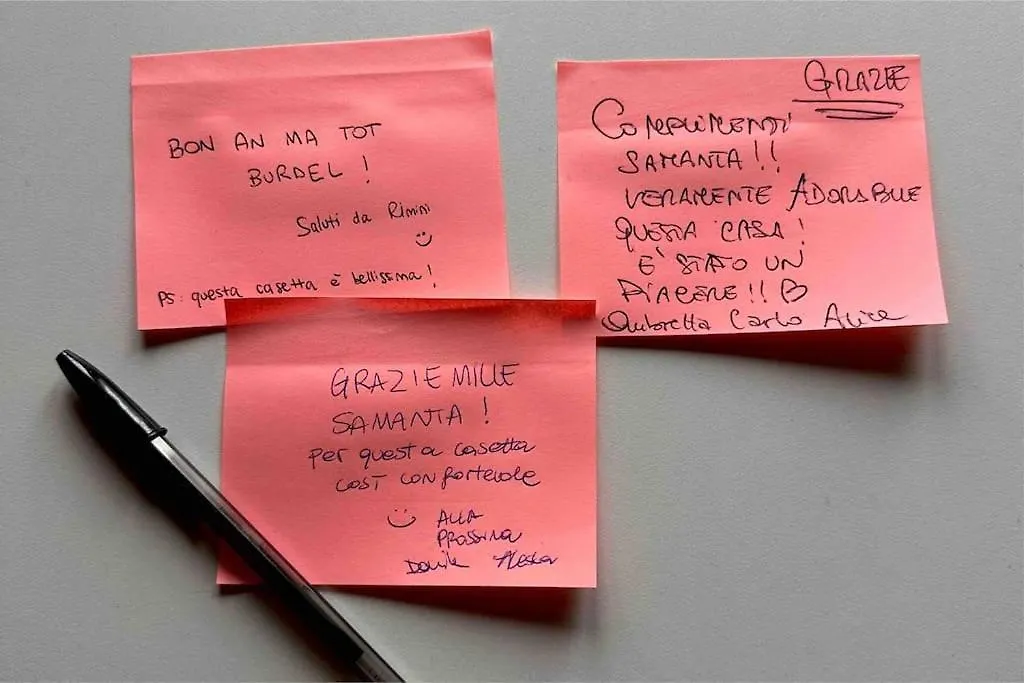 BON AN MA TOT
BURDEL !
Saluti da Rimini
PS: questa casetta è bellissima!
GRAZIE
COMPLIMENTI
SAMANTA!!
VERAMENTE ADORABILE
QUESTA CASA!
E' STATO UN
PIACERE!!
Carlo Alice
GRAZIE MILLE
SAMANTA !
per questa casetta
così confortevole
ALLA
PROSSIMA